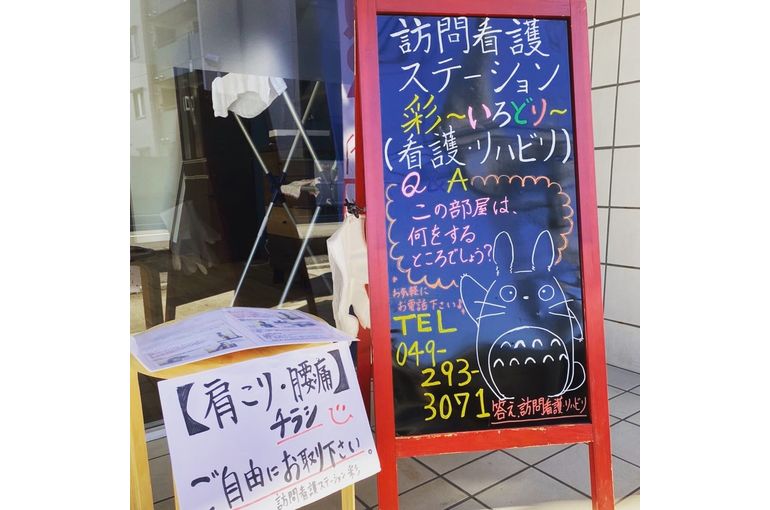 訪問看護
ステーション
彩～いろどり～
(看護・リハビリ)
Q A
この部屋は、
何をする
ところでしょう?
お気軽に
お電話下さい♪
TEL
049-
293-
3071
答え、訪問看護・リハビリ
【肩こり・腰痛】
チラシ
ご自由にお取り下さい。
訪問看護ステーション彩